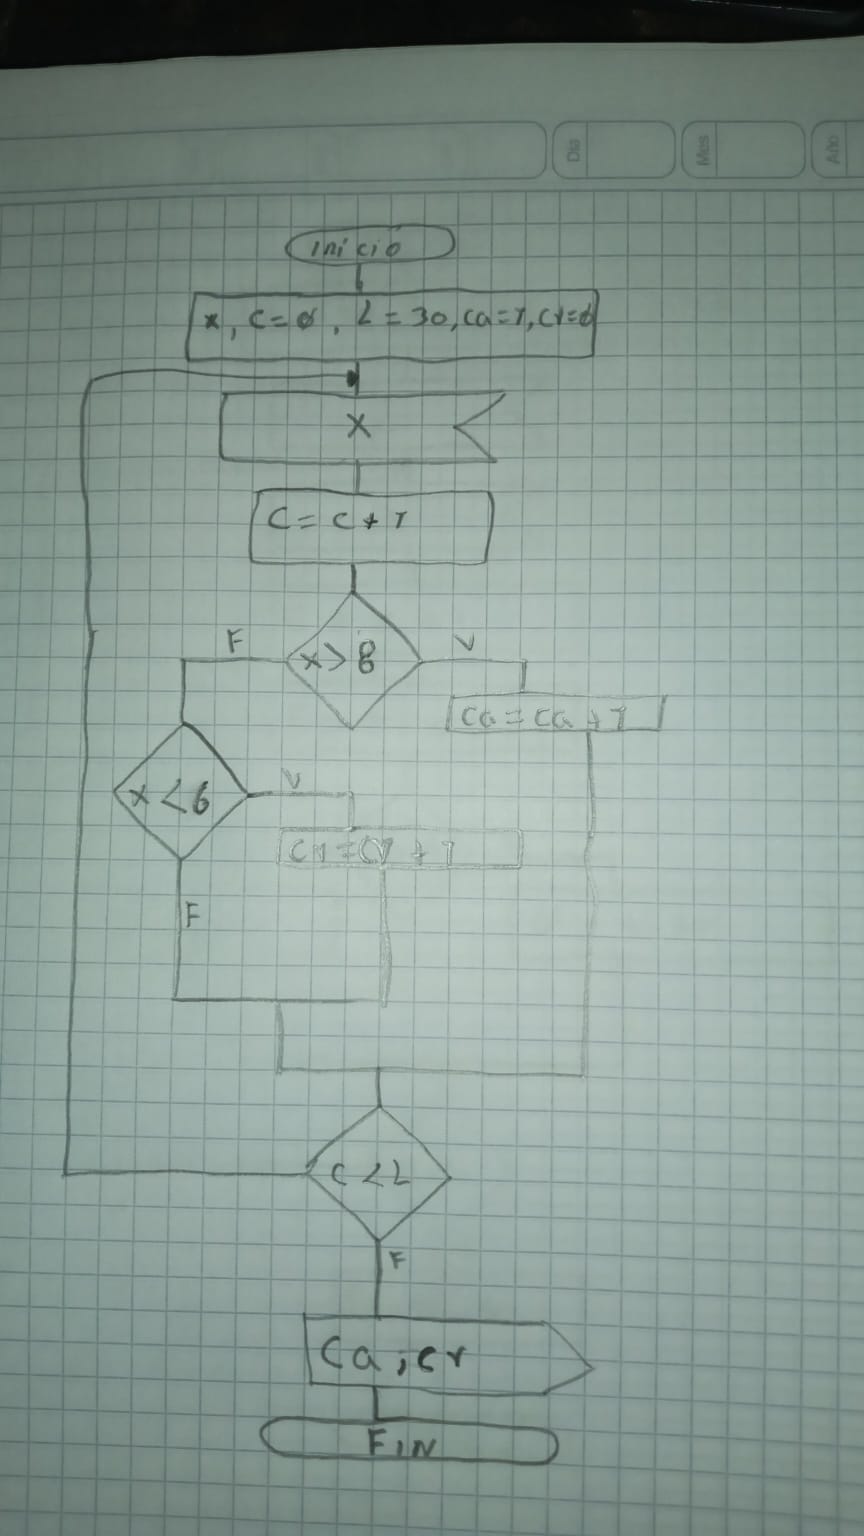 Dia Mes Año
inicio
x, C=0, L=30, ca=1, cr=0
X
C = C + 1
F x > 8 V
ca = ca + 1
x < 6 V
cr = cr + 1
F
C < L
F
Ca, cr
FIN